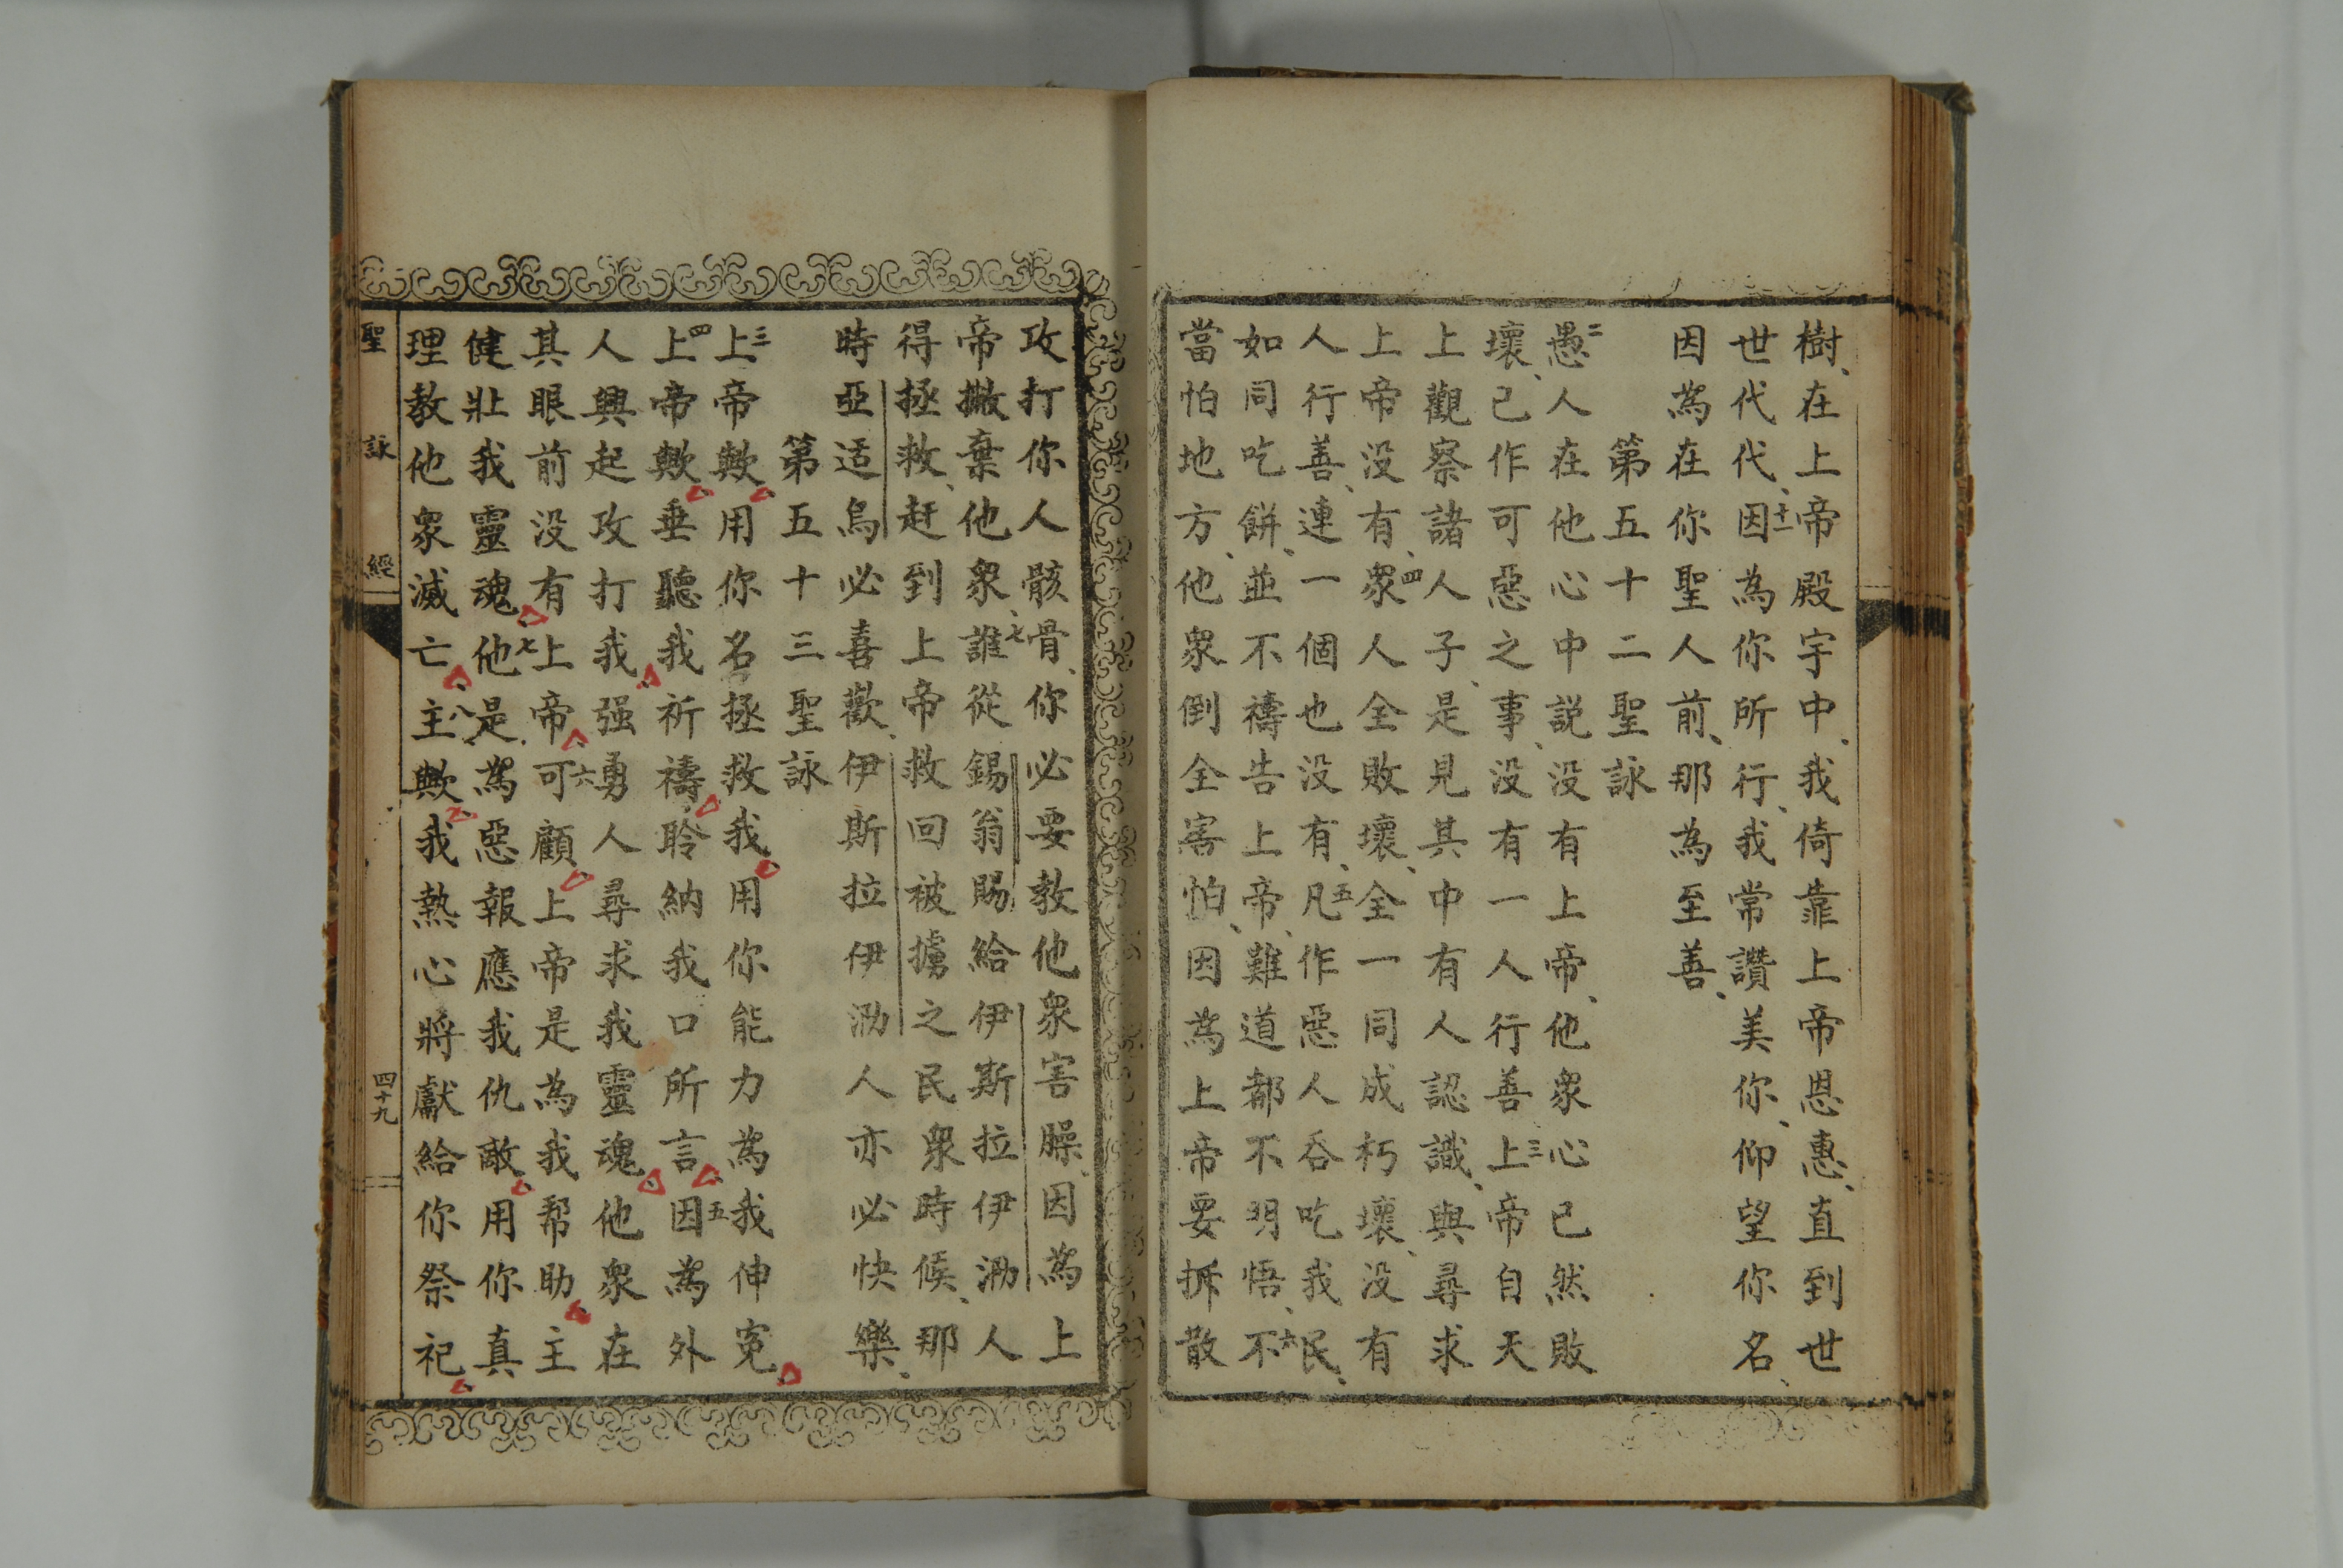 樹、在上帝殿宇中、我倚靠上帝恩惠、直到世
世代代、十一因為你所行、我常讚美你、仰望你名、
因為在你聖人前、那為至善、
第五十二聖詠
二愚人在他心中説没有上帝、他衆心已然敗
壞、已作可惡之事、没有一人行善三上帝自天
上觀察諸人子、是見其中有人認識、與尋求
上帝没有、四衆人全敗壞、全一同成朽壞、没有
人行善、連一個也没有、五凡作惡人吞吃我民、
如同吃餅、並不禱告上帝、難道都不明悟、六不
當怕地方、他衆倒全害怕、因為上帝要拆散
攻打你人骸骨、你必要教他衆害臊、因為上
帝撇棄他衆、七誰從錫翁賜給伊斯拉伊泐人
得拯救、赶到上帝救回被擄之民衆時候、那
時亞适烏必喜歡、伊斯拉伊泐人亦必快樂、
第五十三聖詠
三上帝歟用你名拯救我用你能力為我伸寃
四上帝歟垂聽我祈禱聆納我口所言五因為外
人興起攻打我强勇人尋求我靈魂他衆在
其眼前没有上帝六可顧上帝是為我帮助主
健壯我靈魂七他是為惡報應我仇敵用你真
理教他衆滅亡八主歟我熱心將獻給你祭祀
聖詠經
四十九